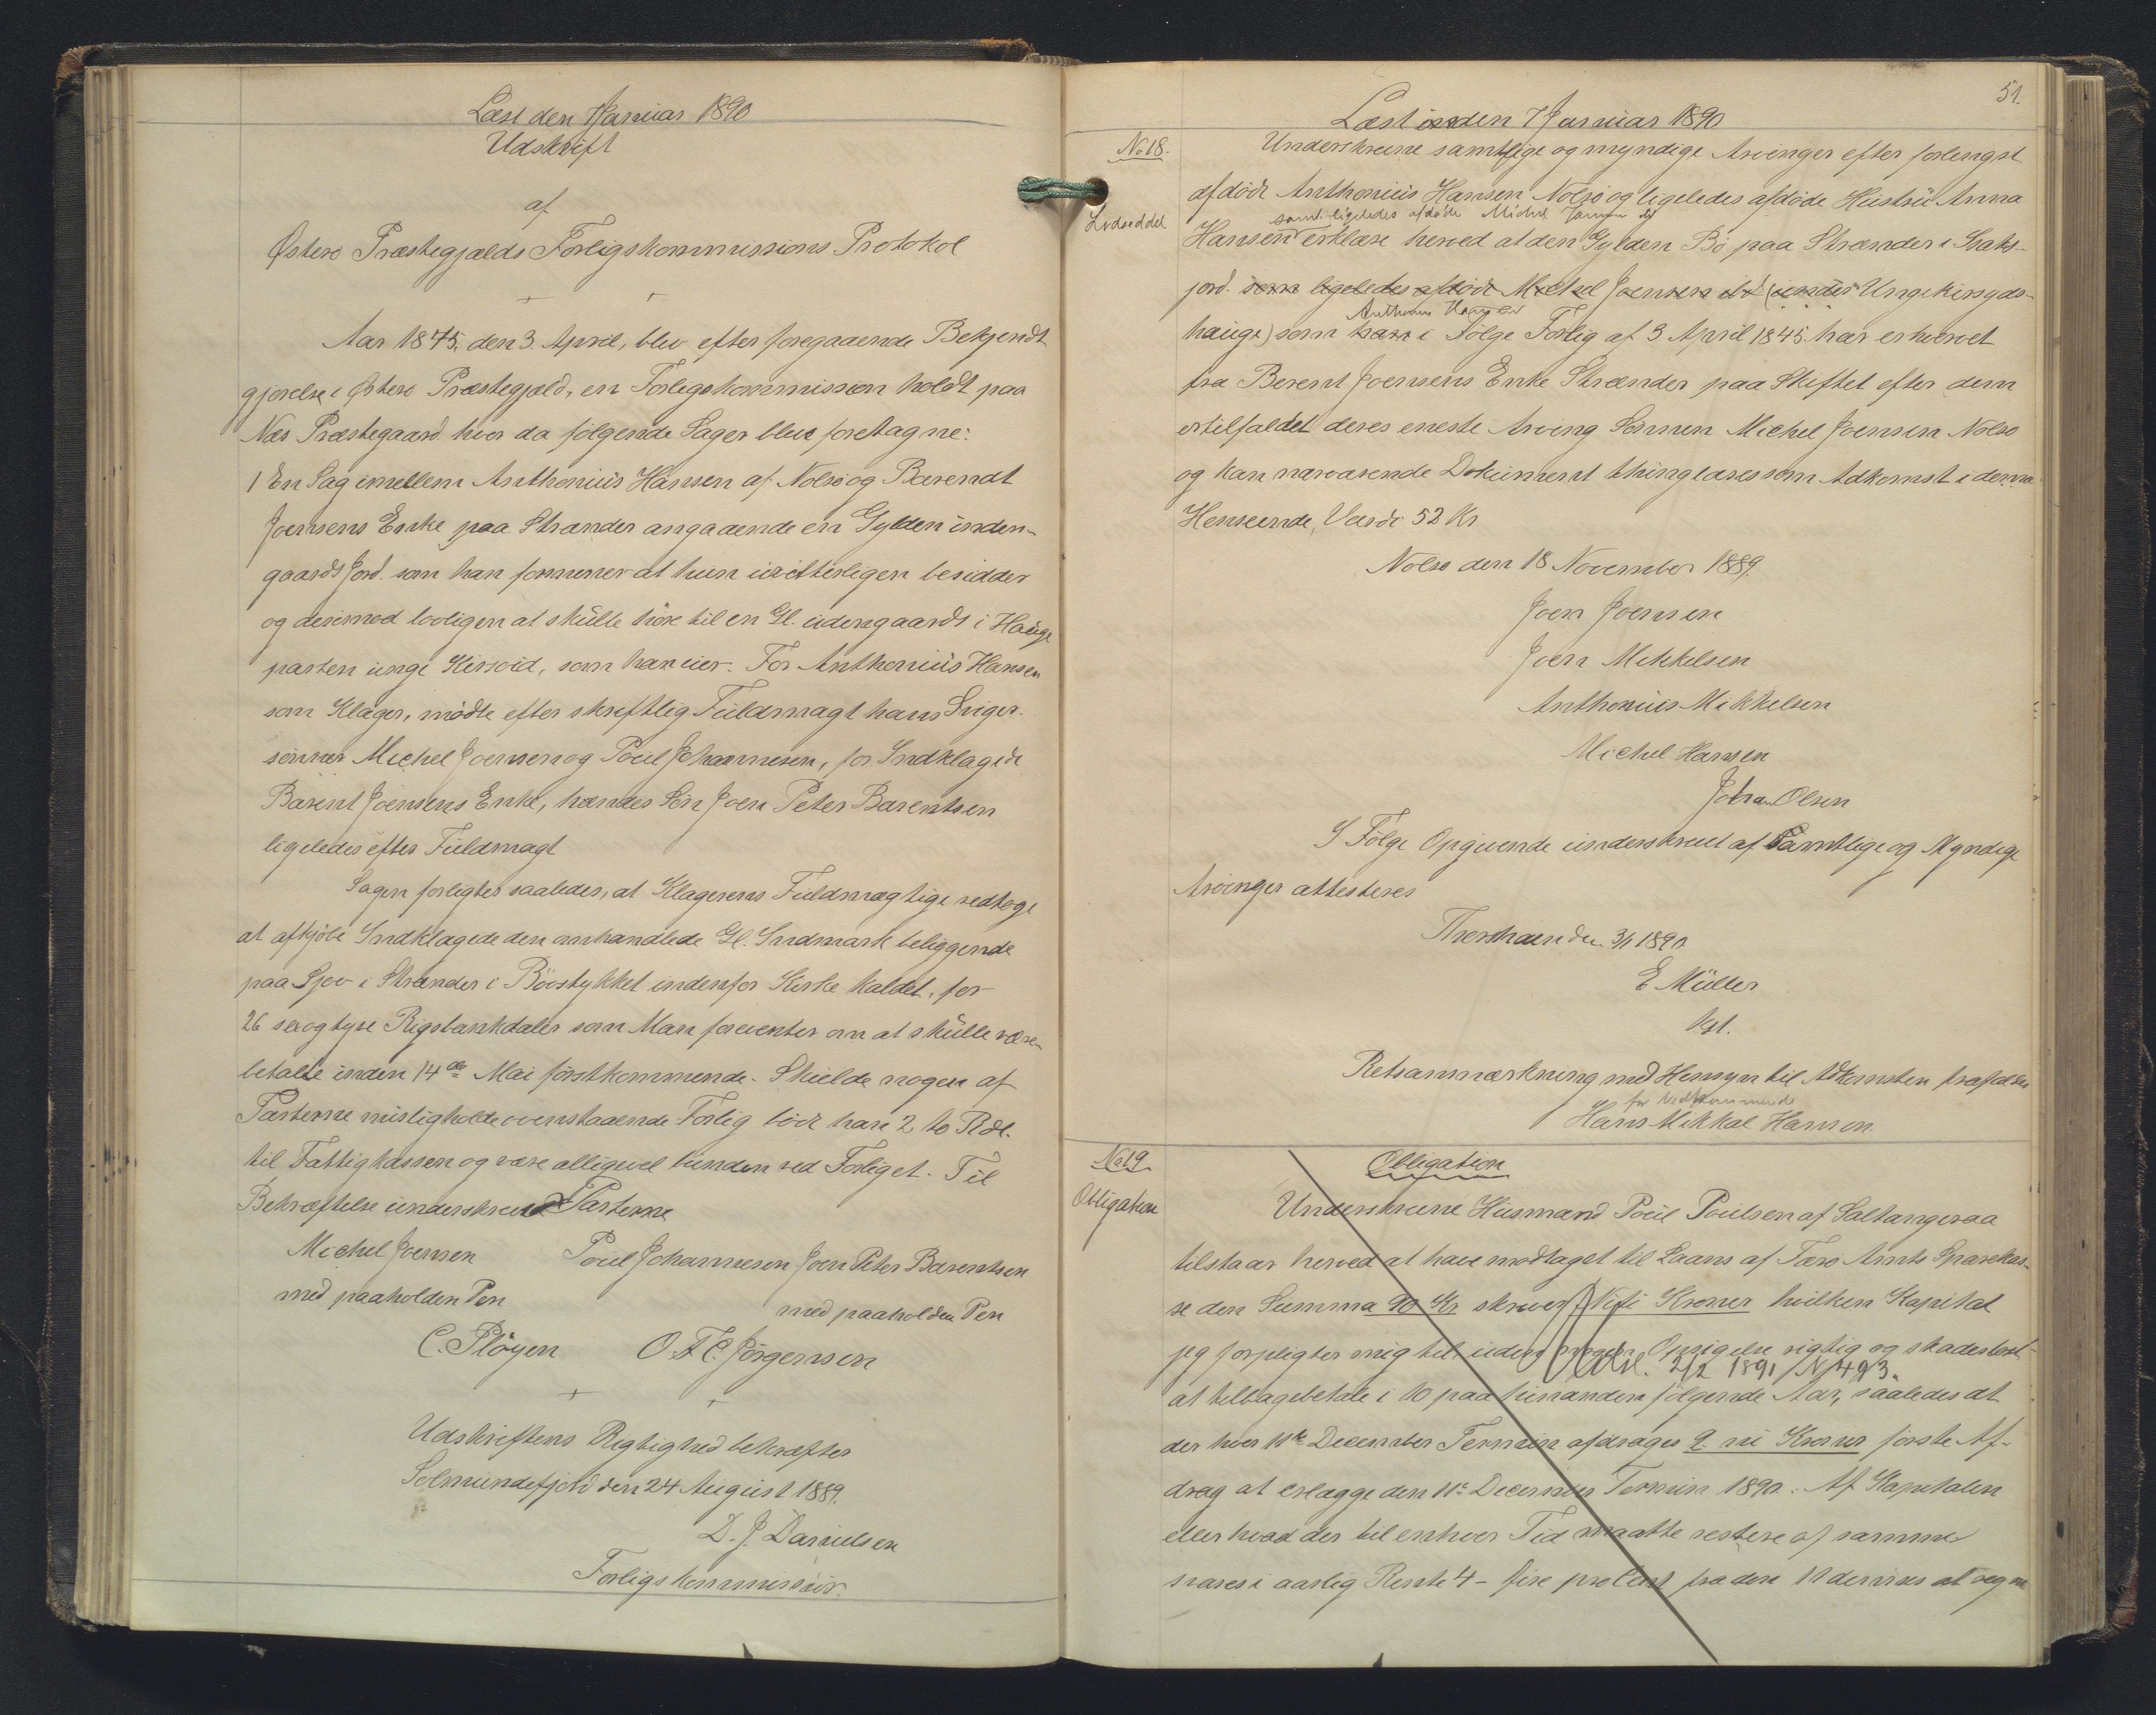 Læst den 7 Januar 1890
Udskrift
af
Østerø Præstegjælds Forligskommissions Protokol
Aar 1845, den 3. April, blev efter foregaaende Bekjendt-
gjørelse i Østerø Præstegjæld, en Forligskommission holdt paa
Næs Præstegaard hvor da følgende Sager bleve foretagne:
1 En Sag imellem Anthonius Hansen af Nolsø og Barendt
Joensens Enke paa Strænder angaaende en Gylden inden-
gaards Jord. som han formener at hun uretterligen besidder
og derimod lovligen at skulle høre til en Gl. udengaards i Hauge
parten unge Kirvid, som han eier. For Anthonius Hansen
som Klager, mødte efter skriftlig Fuldmagt hans Sviger-
sønner Michel Joensen og Poul Johannesen, for Indklagede
Barent Joensens Enke, hendes Søn Joen Peter Barentsen
ligeledes efter Fuldmagt
Sagen forligtes saaledes, at Klagerens Fuldmægtige vedtoge
at afkjøbe Indklagede den omhandlede Gl. Indmark beliggende
paa Sjov i Strænder i Böostykket indenfor Kirke kaldet, for
26 sex og tyve Rigsbankdaler som Man foreenter om at skulle være
betalte inden 14de Mai førstkommende. Skulde nogen af
Parterne misligholde ovenstaaende Forlig bøde han 2 to Rdl.
til Fattigkassen og være alligevel bunden ved Forliget. Til
Bekræftelse underskreve Parterne
Michel Joensen Poul Johannesen Joen Peter Barentsen
med paaholden Pen med paaholden Pen
C. Pløyen O. F. C. Jörgensen
Udskriftens Rigtighed bekræfter
Solmundefjord den 24 August 1889.
D. J. Danielsen
Forligskommissær.
51.
Læst den 7 Januar 1890
No 18.
Underskrevne samtlige og myndige Arvinger efter forlengst
afdøde Anthonius Hansen Nolsø og ligeledes afdøde Hustru Anna
samt ligeledes afdøde Michel Joensen
Hansen erklære herved at den Gylden Bø paa Strænder i Saks-
jord. som ligeledes afdøde Michel Joensen (under Ungekirvids-
Anthonius Hansen
hauge) som han i Følge Forlig af 3 April 1845. har erhvervet
fra Berent Joensens Enke Strænder paa Skiftet efter dem
er tilfaldet deres eneste Arving Sønnen Michel Joensen Nolsø
og kan nærværende Dokument thinglæses som Adkomst i denne
Henseende, Værdi 52 Kr
Nolsø den 18 November 1889.
Joen Joensen
Joen Mikkelsen
Anthonius Mikkelsen
Michel Hansen
Johan Olsen
I Følge Opgivende underskrevet af Samtlige og Myndige
Arvinger attesteres
Thorshavn den 3/1 1890
E Müller
Kst.
Retsanmærkning med Hensyn til Adkomsten frafaldes
for Vedkommende
Hans Mikkal Hansen
No 19.
Obligation
Obligation
Underskrevne Husmand Poul Poulsen af Saltangeraa
tilstaar herved at have modtaget til Laans af Færø Amts Sparekas-
se den Summa 90 Kr skriver Niti Kroner hvilken Kapital
jeg forpligter mig til uden nogen Opsigelse rigtig og skadesløst
Udsl. 2/2 1891 / N 493.
at tilbagebetale i 10 paa hinanden følgende Aar, saaledes at
der hver 11te December Termin afdrages 9. ni Kroner første Af-
drag at erlægge den 11te December Termin 1890. Af Kapitalen
eller hvad der til enhver Tid maatte restere af samme
svares i aarlig Rente 4 - fire procent fra den 11 at regne